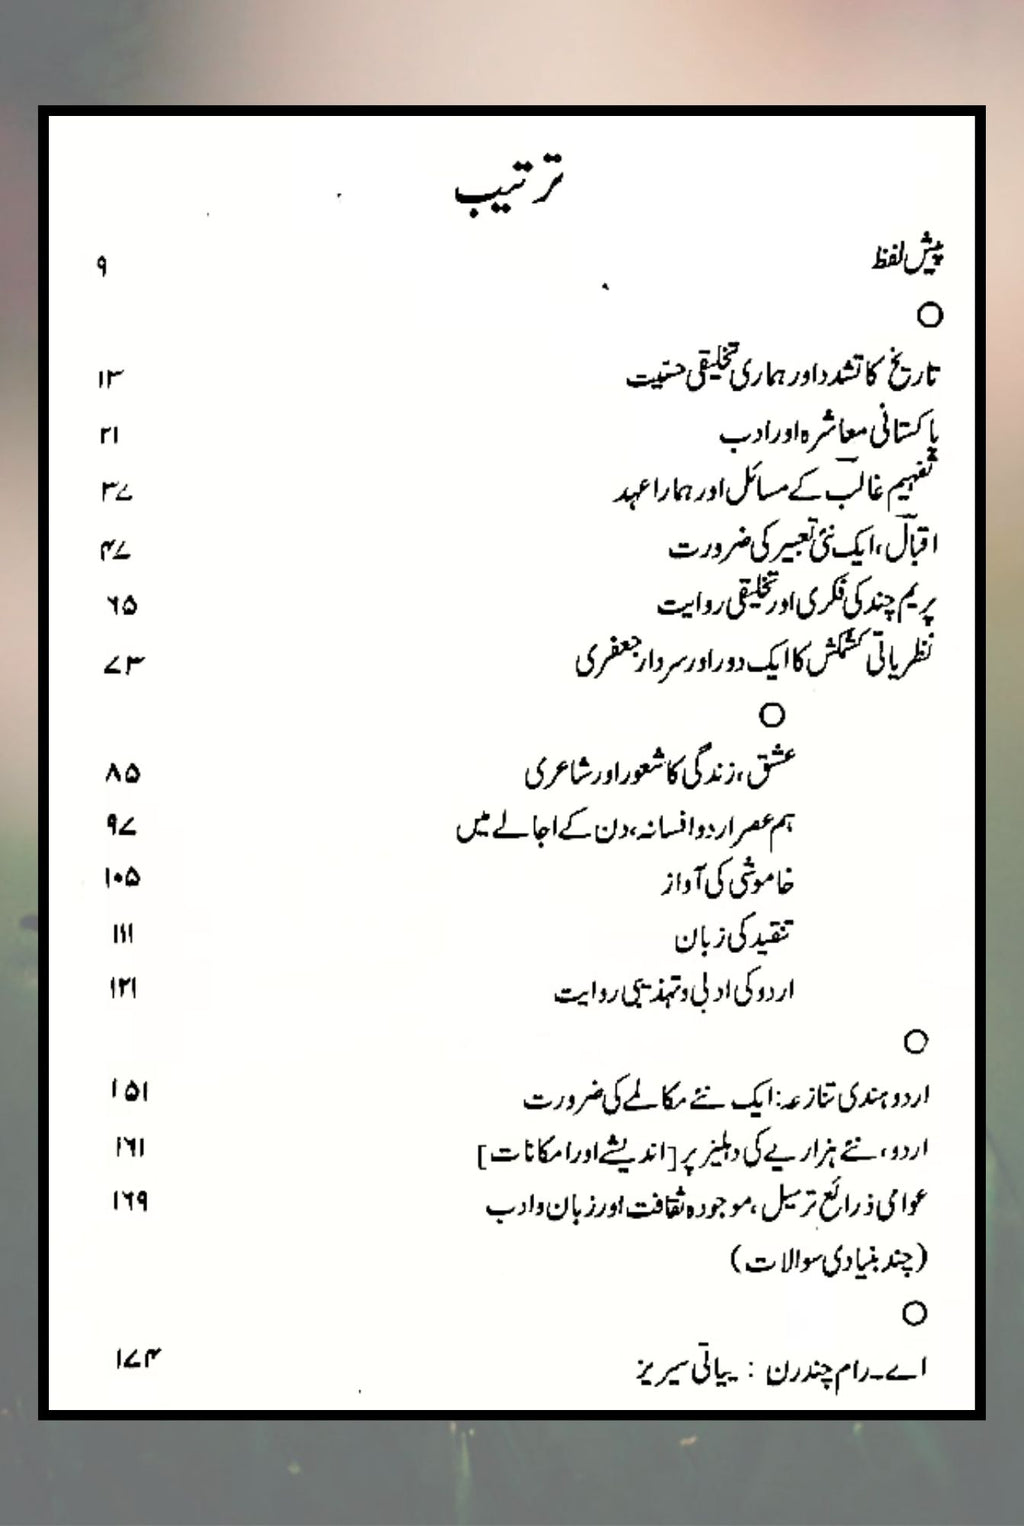 ترتیب
پیش لفظ ۹
تاریخ کا تشدد اور ہماری تخلیقی حسّیت ۱۳
پاکستانی معاشرہ اور ادب ۲۱
تفہیم غالبؔ کے مسائل اور ہمارا عہد ۳۷
اقبالؔ، ایک نئی تعبیر کی ضرورت ۴۷
پریم چند کی فکری اور تخلیقی روایت ۶۵
نظریاتی کشمکش کا ایک دور اور سردار جعفری ۷۳
عشق، زندگی کا شعور اور شاعری ۸۵
ہم عصر اردو افسانہ، دن کے اجالے میں ۹۷
خاموشی کی آواز ۱۰۵
تنقید کی زبان ۱۱۱
اردو کی ادبی و تہذیبی روایت ۱۲۱
اردو ہندی تنازعہ: ایک نئے مکالمے کی ضرورت ۱۵۱
اردو، نئے ہزاریے کی دہلیز پر [اندیشے اور امکانات] ۱۶۱
عوامی ذرائع ترسیل، موجودہ ثقافت اور زبان و ادب ۱۶۹
(چند بنیادی سوالات)
اے۔ رام چندرن : ییاتی سیریز ۱۷۴